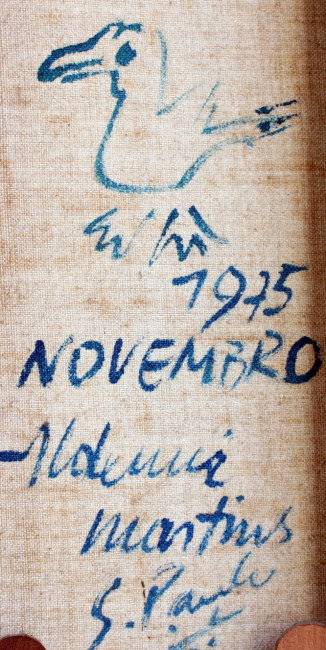 1975
NOVEMBRO
Aldemir
martins
S. Paulo